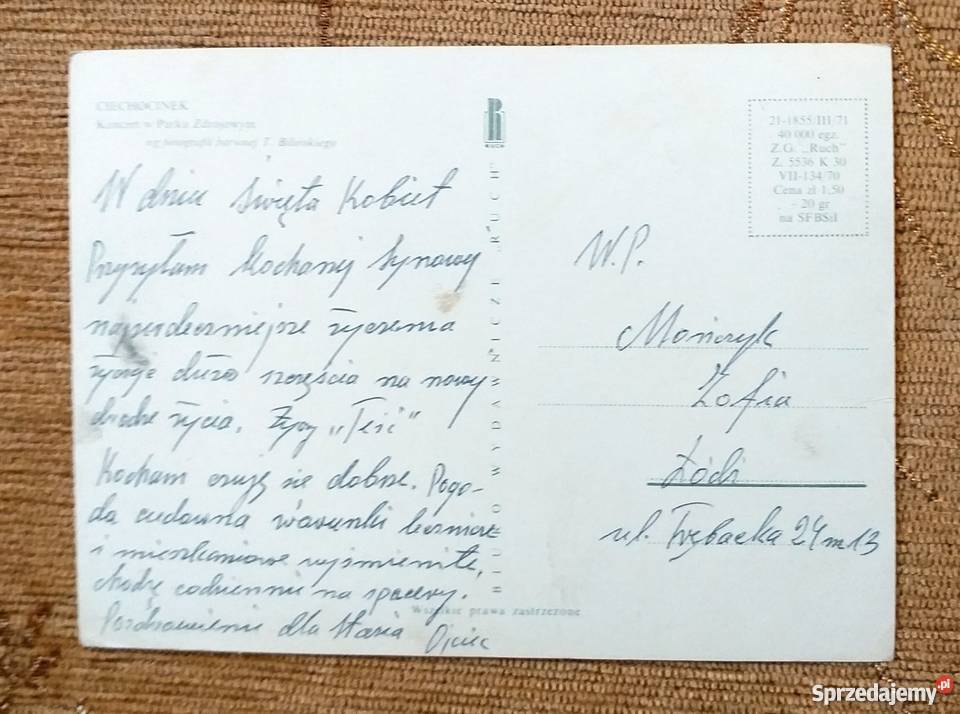 CIECHOCINEK
Koncert w Parku Zdrojowym
wg fotografii barwnej T. Bilińskiego
W dniu Święta Kobiet
Przysyłam Kochanej Synowy
najserdeczniejsze życzenia
życzę dużo szczęścia na nowy
drodze życia. Życzy „Teść”
Kocham czuję się dobrze. Pogo-
da cudowna warunki lecznicze
i mieszkaniowe wyśmienite,
chodzę codziennie na spacery.
Pozdrowienia dla Stasia Ojciec
R
RUCH
BIURO WYDAWNICZE „RUCH”
Wszelkie prawa zastrzeżone
21-1855/III/71
40 000 egz.
Z.G. „Ruch”
Z. 5536 K 30
VII-134/70
Cena zł 1,50
- 20 gr
na SFBSiI
W.P.
Zofia
Łódź
ul. Trębacka 24 m 13
Sprzedajemy.pl